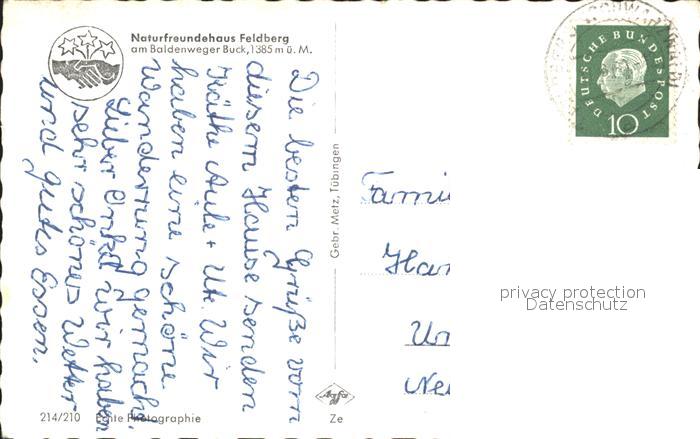 Naturfreundehaus Feldberg
am Baldenweger Buck, 1385 m ü. M.
Die besten Grüße vom
diesem Hause senden
Käthe + Ute. Wir
haben eine schöne
Wanderung gemacht.
Lieber Onkel wir haben
sehr schönes Wetter
und gutes Essen.
Gebr. Metz, Tübingen
DEUTSCHE BUNDESPOST
10
Fami
Har
Un
Ne
privacy protection
Datenschutz
214/210 Echte Photographie
Agfa
Ze